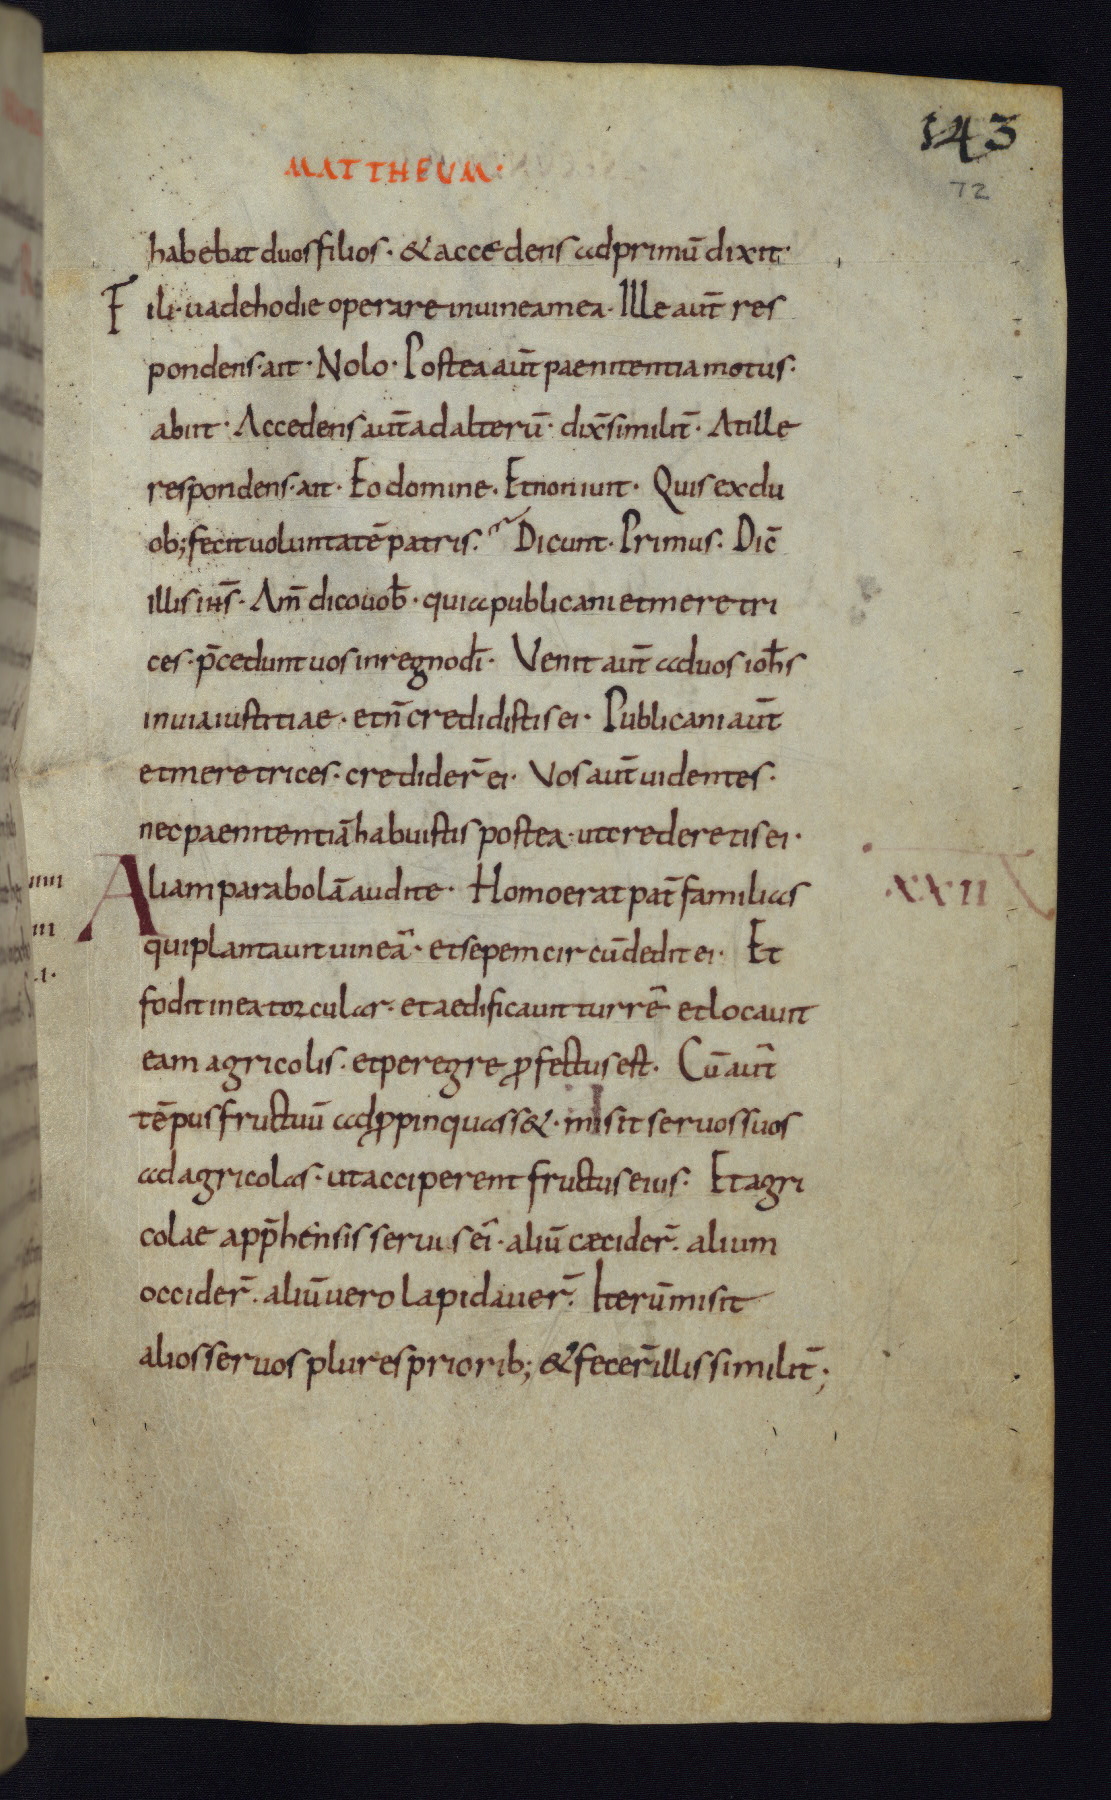 143
72
MATTHEUM·
habebat duos filios · & accedens ad primū dixit·
Fili · uade hodie operare in uinea mea · Ille aut̄ res
pondens · ait · Nolo · Postea aut̄ paenitentia motus·
abiit · Accedens aut̄ ad alterū · dix̄ similit̄ · At ille
respondens · ait · Eo domine · Et non iuit · Quis ex du
ob; fecit uoluntatē patris · Dicunt · Primus · Dic̄
illis ih̄s · Am̄ dico uob̄ · quia publicani et meretri
ces · p̄cedunt uos in regno dī · Venit aut̄ ad uos ioh̄s
in uia iustitiae · et n̄ credidistis ei · Publicani aut̄
et meretrices · credider̄ ei · Vos aut̄ uidentes ·
nec paenitentiā habuistis postea · ut crederetis ei ·
Aliam parabolā audite · Homo erat pat̄ familias
XXII
qui plantauit uineā · et sepem circū dedit ei · Et
fodit in ea torcular · et aedificauit turrē et locauit
eam agricolis · et peregre ꝓfectus est · Cū aut̄
tēpus fructuū adꝓpinquass& · misit seruos suos
ad agricolas · ut acciperent fructus eius · Et agri
colae app̄hensis seruis ei · aliū cæcider̄ · alium
occider̄ · aliū uero lapidauer̄ · Iterū misit
alios seruos plures priorib; & fecer̄ illis similit̄;